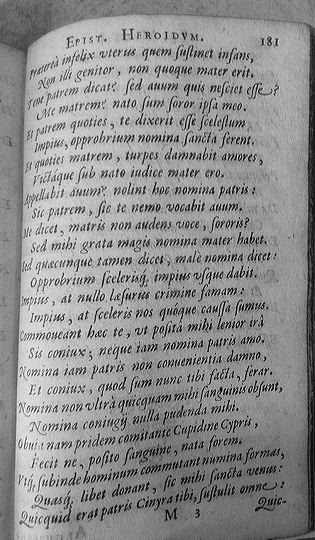 EPIST. HEROIDVM. 181
Præterea infelix vterus quem sustinet infans,
Non illi genitor, non quoque mater erit.
me patrem dicat? sed auum quis nesciet esse?
Me matrem? nato sum soror ipsa meo.
Et patrem quoties, te dixerit esse scelestum
Impius, opprobrium nomina sancta ferent.
Et quoties matrem, turpes damnabit amores,
Victaque sub nato iudice mater ero.
Appellabit auum? nolint hoc nomina patris:
Sic patrem, sic te nemo vocabit auum.
Me dicet, matris non audens voce, sororis?
Sed mihi grata magis nomina mater habet.
Sed quæcunque tamen dicet, malè nomina dicet:
Opprobrium scelerisq; impius vsque dabit.
Impius, at nullo læsurus crimine famam:
Impius, at sceleris nos quoque caussa sumus.
Commoueant hæc te, vt posita mihi lenior ira
Sis coniux; neque iam nomina patris amo.
Nomina iam patris non conuenientia damno,
Et coniux, quod sum nunc tibi facta, ferar.
Nomina non vltrà quicquam mihi sanguinis obsunt,
Nomina coniugÿ nulla pudenda mihi.
Obuia nam pridem comitante Cupidine Cypris,
Fecit ne, posito sanguine, nata forem.
Vtq; subinde hominum commutant numina formas,
Quasq; libet donant, sic mihi sancta venus:
Quicquid erat patris Cinyra tibi, sustulit omne:
M 3 Quic-